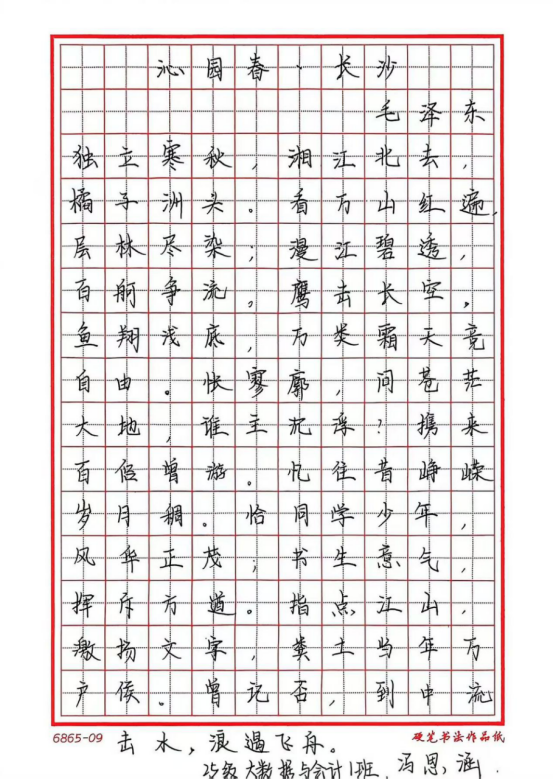 沁园春·长沙
毛泽东
独立寒秋，湘江北去，
橘子洲头。看万山红遍，
层林尽染；漫江碧透，
百舸争流。鹰击长空，
鱼翔浅底，万类霜天竞
自由。怅寥廓，问苍茫
大地，谁主沉浮？携来
百侣曾游。忆往昔峥嵘
岁月稠。恰同学少年，
风华正茂；书生意气，
挥斥方遒。指点江山，
激扬文字，粪土当年万
户侯。曾记否，到中流
6865-09 硬笔书法作品纸
击水，浪遏飞舟。
25级大数据与会计1班 冯思涵